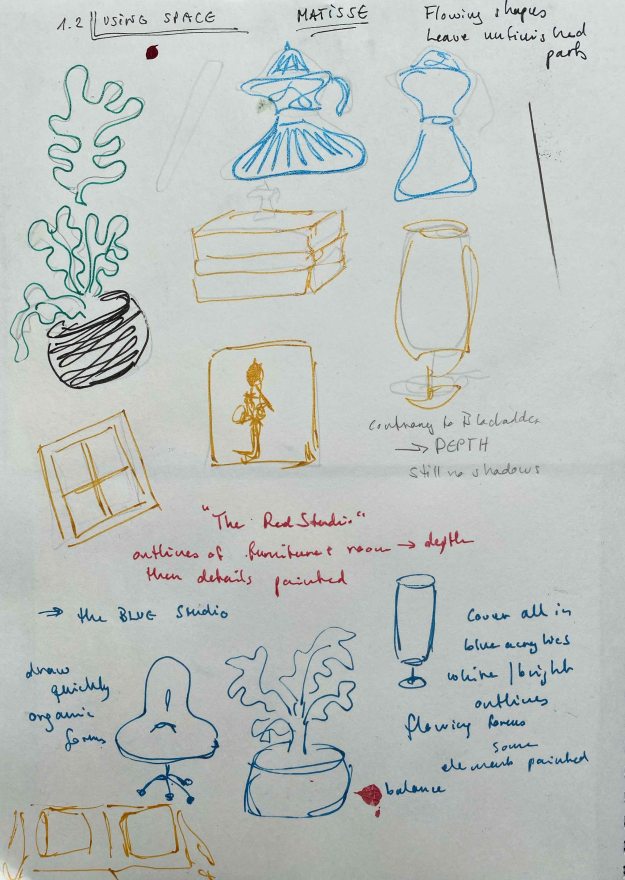 1.2 USING SPACE
MATISSE
Flowing shapes
Leave unfinished
parts
contrary to Blackadder
→ DEPTH
still no shadows
"The Red Studio"
outlines of furniture + room → depth
then details painted
⇒ the BLUE Studio
draw
quickly
organic
forms
Cover all in
blue acrylics
white / bright
outlines
flowing forms
some
elements painted
balance